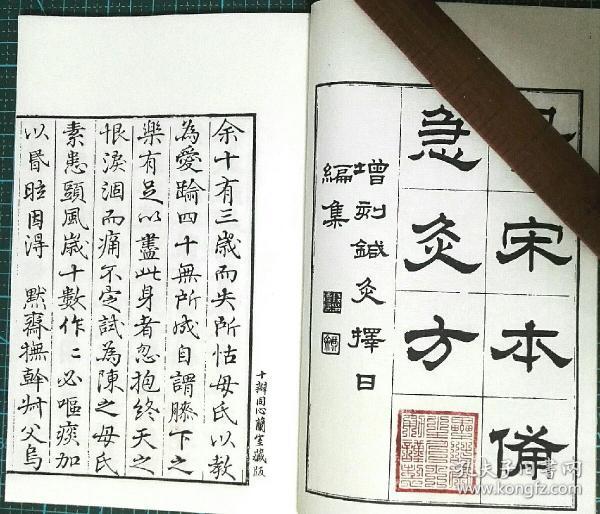 宋本備
急灸方
增刻鍼灸擇日
編集
十瓣同心蘭室藏版
余十有三歲而失所怙母氏以教
為愛踰四十無所成自謂膝下之
樂有足以盡此身者忽抱終天之
恨淚涸而痛不定試為陳之母氏
素患頭風歲十數作〻必嘔痰加
以昏眩因得 默齋撫幹叔父烏
孔夫子旧书网
www.kongfz.com